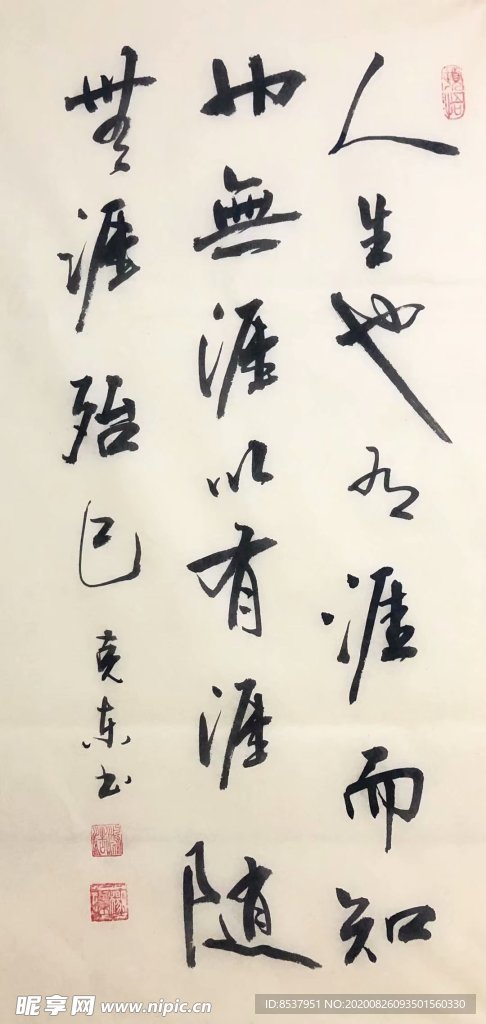 人生也有涯而知
也無涯以有涯随
無涯殆已
克东书
昵享网 www.nipic.cn
ID:8537951 NO:20200826093501560330